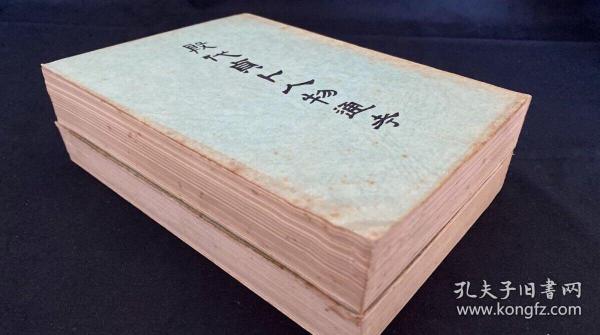 殷代貞卜人物通考
孔夫子旧書网
www.kongfz.com